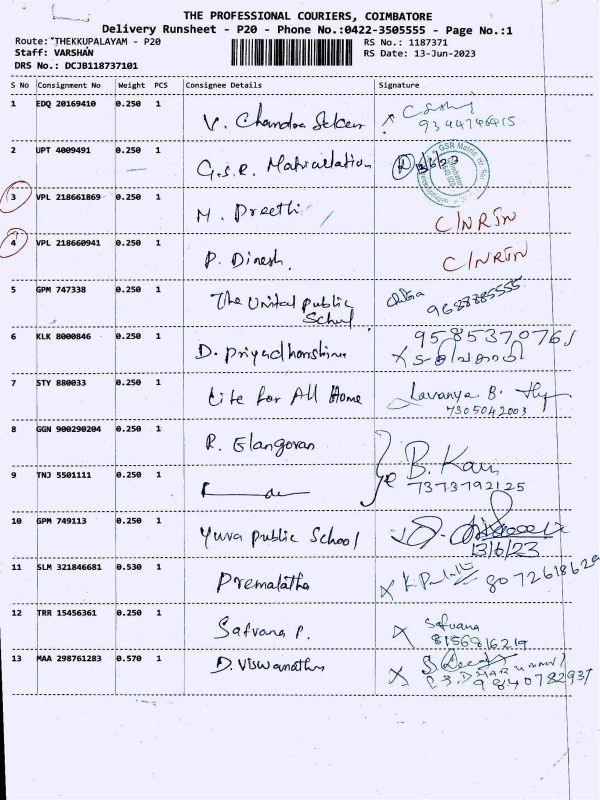 THE PROFESSIONAL COURIERS, COIMBATORE
Delivery Runsheet - P20 - Phone No.:0422-3505555 - Page No.:1
Route: THEKKUPALAYAM - P20 RS No.: 1187371
Staff: VARSHAN RS Date: 13-Jun-2023
DRS No.: DCJB118737101
S No Consignment No Weight PCS Consignee Details Signature
1 EDQ 20169410 0.250 1 V. Chandra Sekar
9344746415
2 UPT 4009491 0.250 1 G.S.R. 13/6/23
GSR Matric Hr. Sec
3 VPL 218661869 0.250 1 M. Preethi C/NRSN
4 VPL 218660941 0.250 1 P. Dinesh. C/NRSN
5 GPM 747338 0.250 1 The United public School
9688785555
6 KLK 8000846 0.250 1 D. Priyadharshini
7 STY 880033 0.250 1 Lite for All Home Lavanya B.
7305042003
8 GGN 900290204 0.250 1 R. Elangovan
9 TNJ 5501111 0.250 1 B. Kavi
7373792125
10 GPM 749113 0.250 1 Yuva public School
13/6/23
11 SLM 321846681 0.530 1 Premalatha 8072618629
12 TRR 15456361 0.250 1 Safvana P. Safvana
8156816219
13 MAA 298761283 0.570 1 D. Viswanathn
9840782937